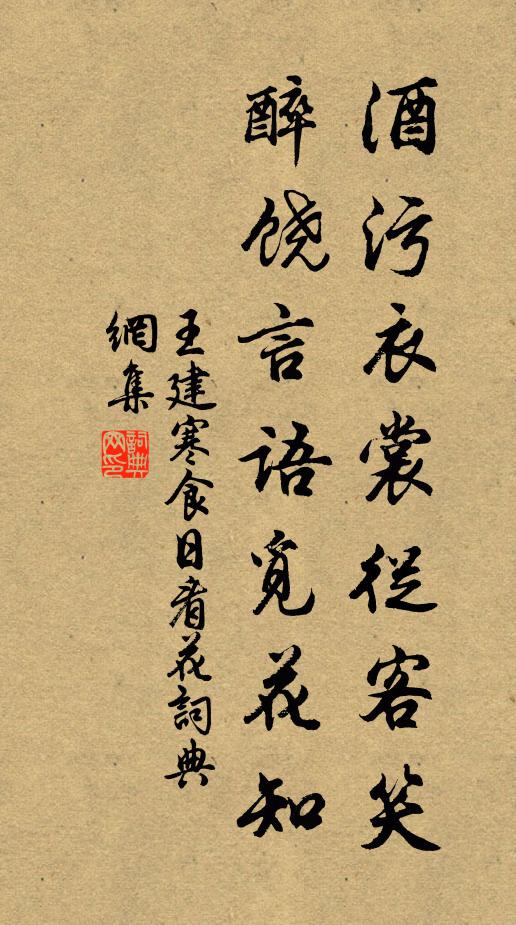 酒污衣裳從客笑
醉饶言语覓花知
王建寒食日看花詞典
網集
詞典網印